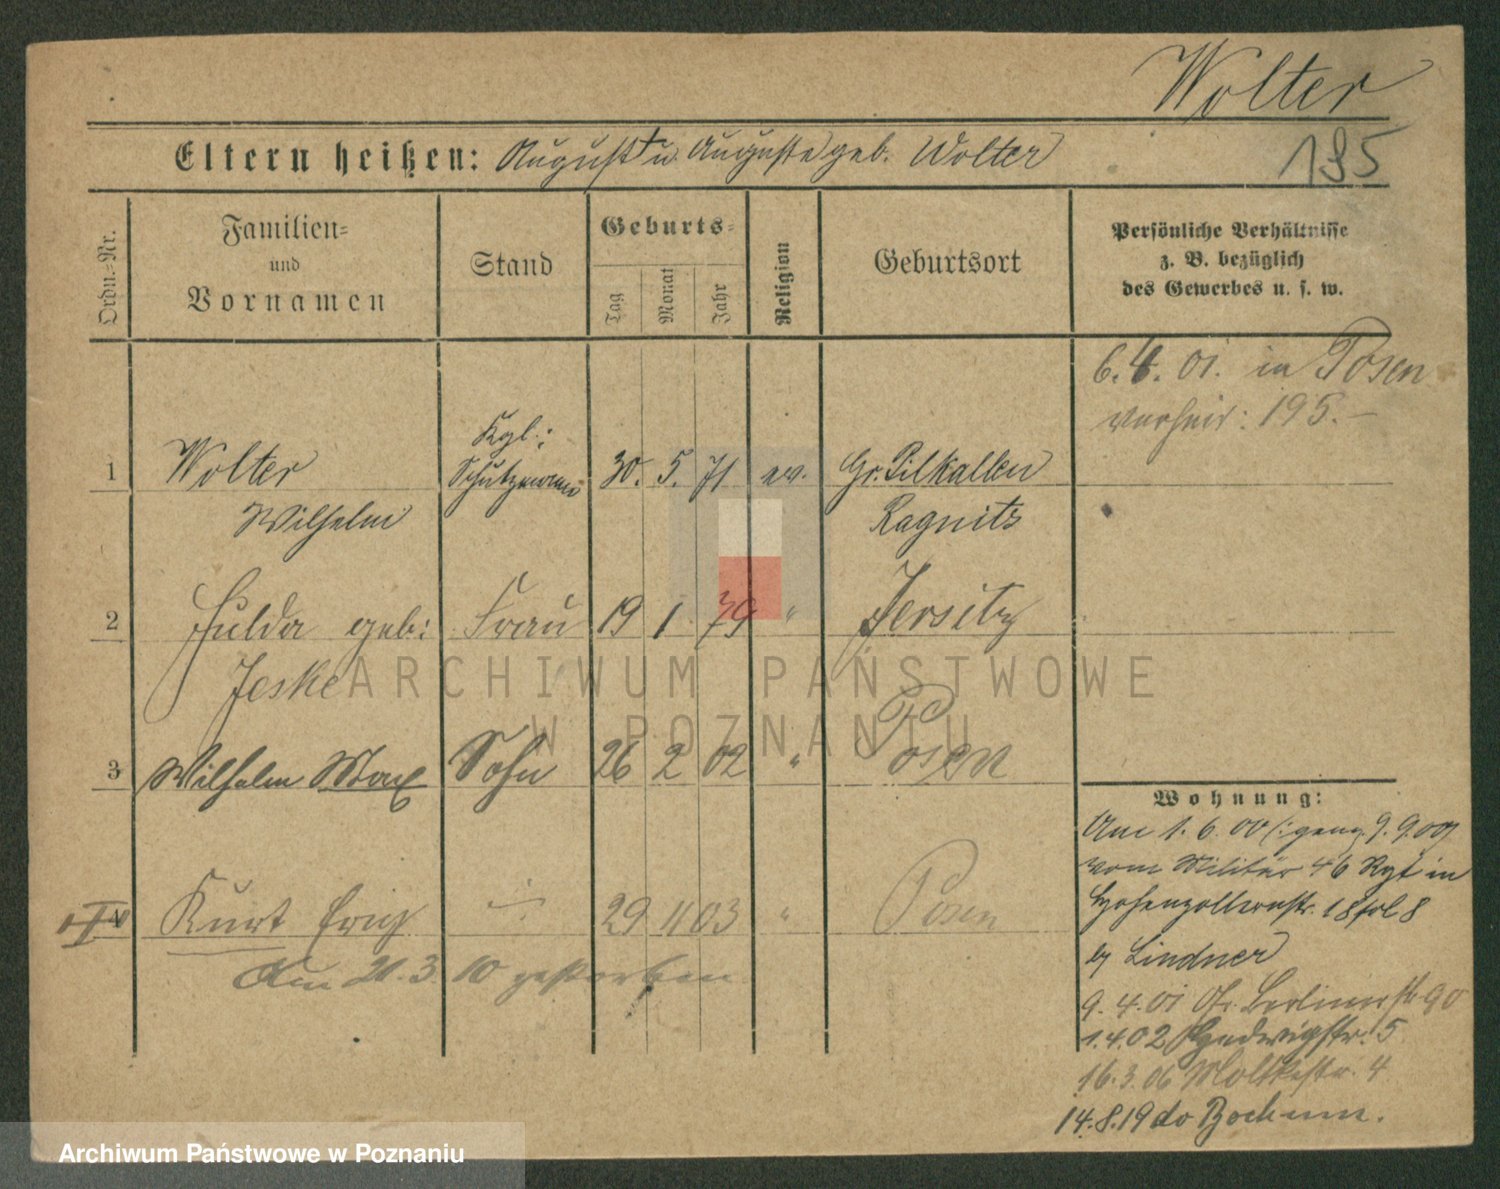 Wolter
Eltern heißen: August † u. Auguste geb. Wolter
195
Ordn.-Nr.
Familien-
und
Vornamen
Stand
Geburts-
Tag
Monat
Jahr
Religion
Geburtsort
Persönliche Verhältnisse
z. B. bezüglich
des Gewerbes u. s. w.
6. 4. 01. in Posen
verheir: 195.-
1 Wolter Kgl. Schutzmann 30. 5. 71 ev. Gr. Pilkallen
Wilhelm Ragnit
2 Hulda geb: Frau 19 1 79 " Jersitz
Jeske
3 Wilhelm Max Sohn 26 2 02 " Posen
Kurt Erich 29 11 03 " Posen
Am 21. 3 10 gestorben
Wohnung:
Am 1. 6. 00 9. 9. 00
vom Militär 46 Rgt in
Hohenzollernstr. 18
by Lindner
9. 4. 01 Berlinerstr. 90
1. 4. 02 Hedwigstr. 5
16. 3. 06 Moltkestr. 4
14. 8. 19 do Bochum.
ARCHIWUM PAŃSTWOWE
W POZNANIU
Archiwum Państwowe w Poznaniu